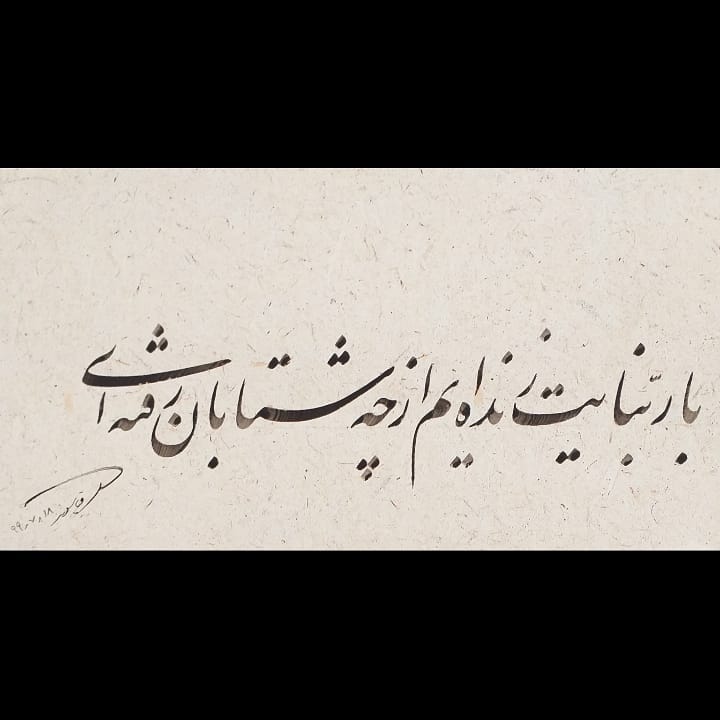 با ربّنایت زنده ایم از چه شتابان رفته ای
۹۹،۷،۱۸